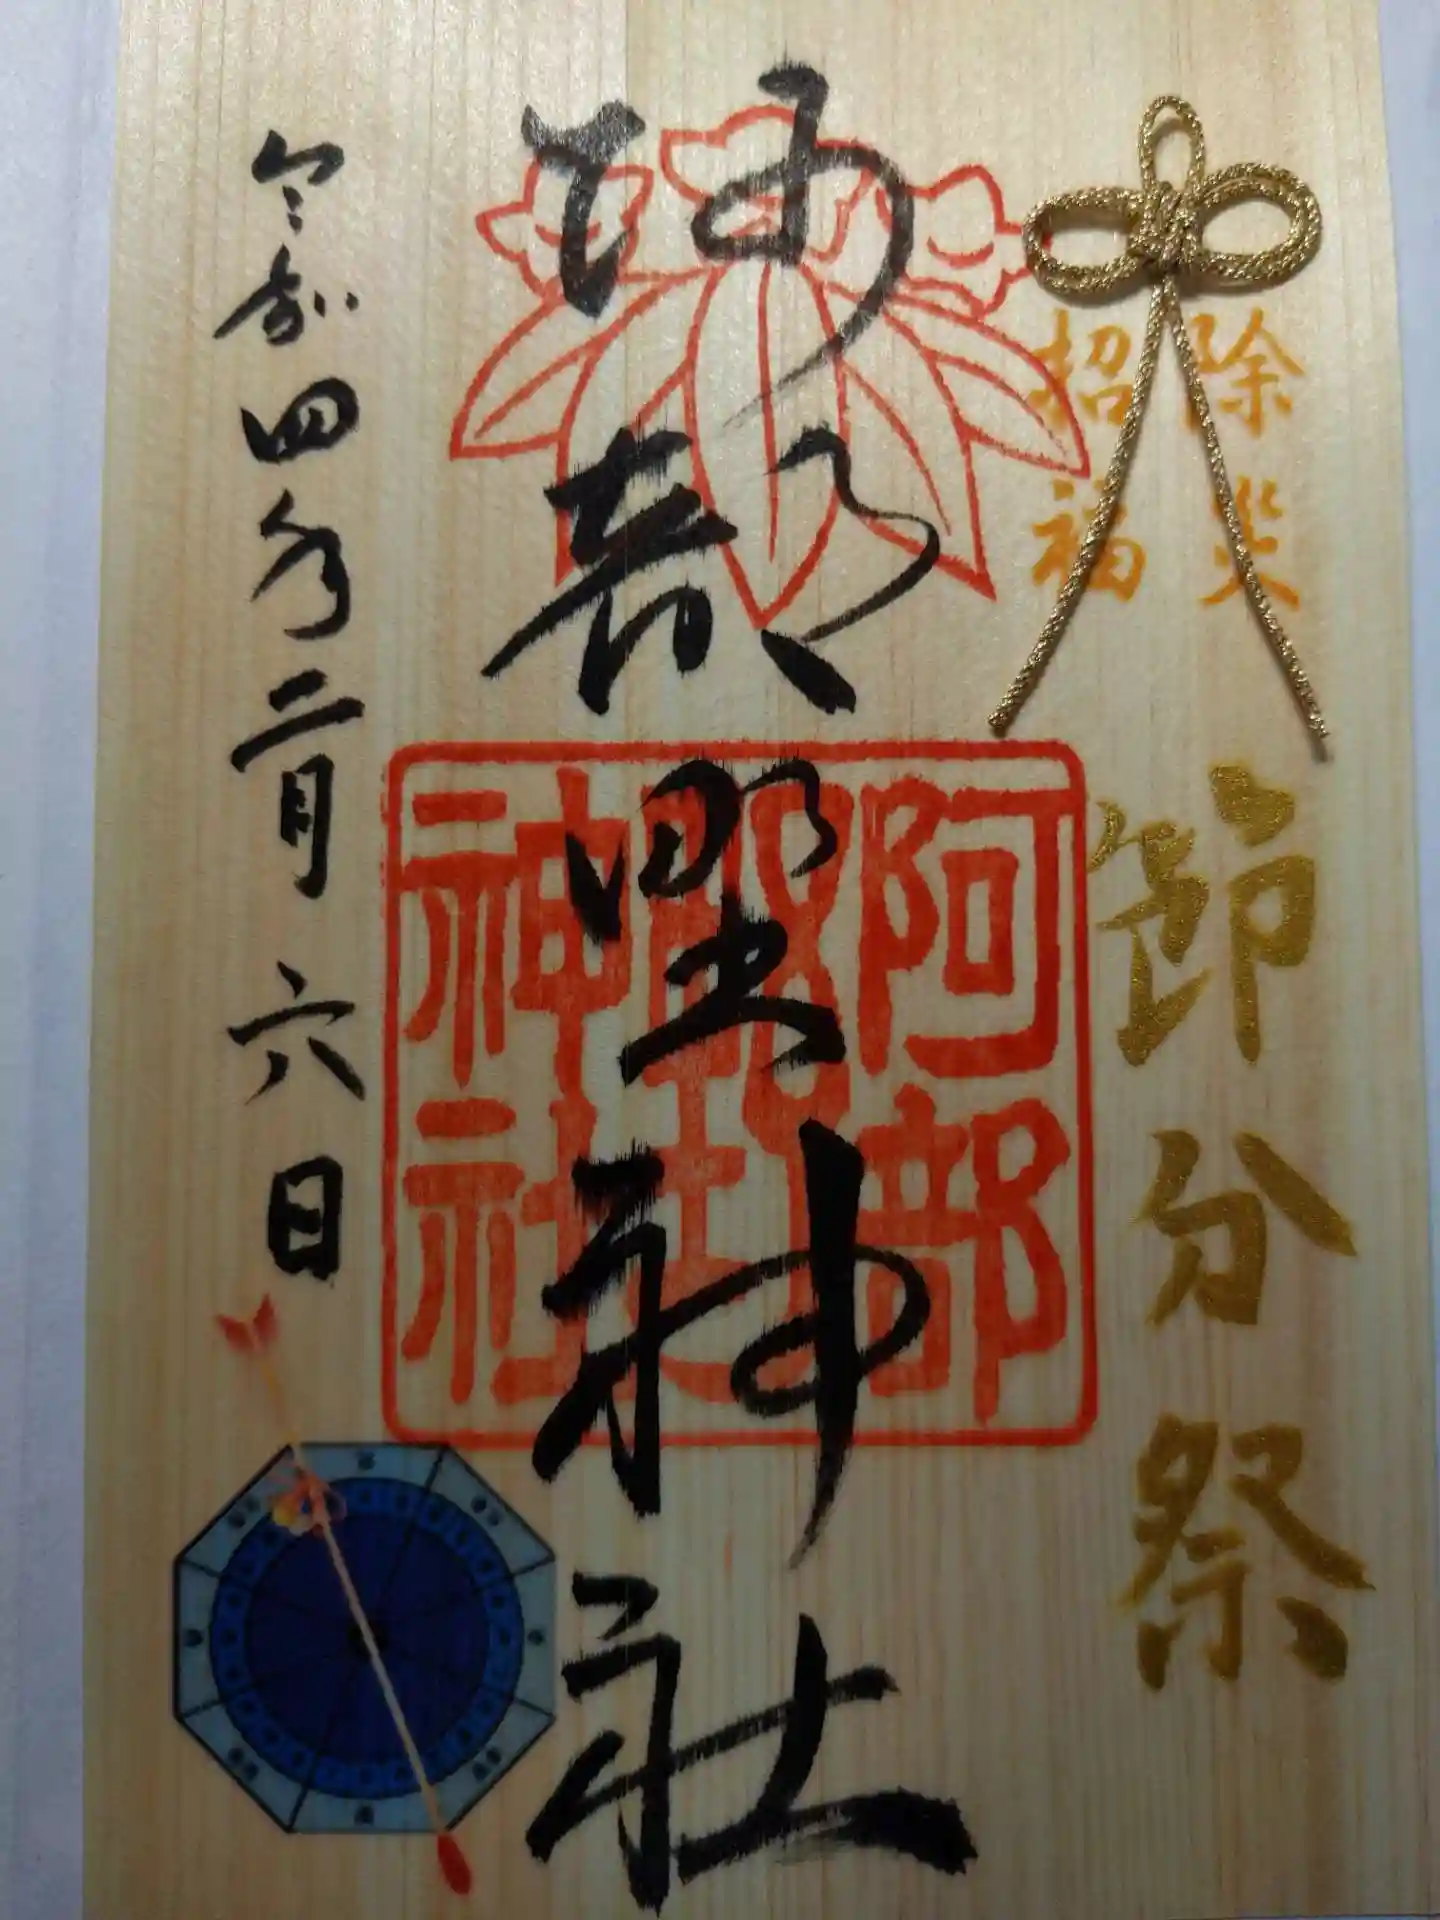 除災
招福
節分祭
阿部野神社
阿部
野神社
令和四年二月六日